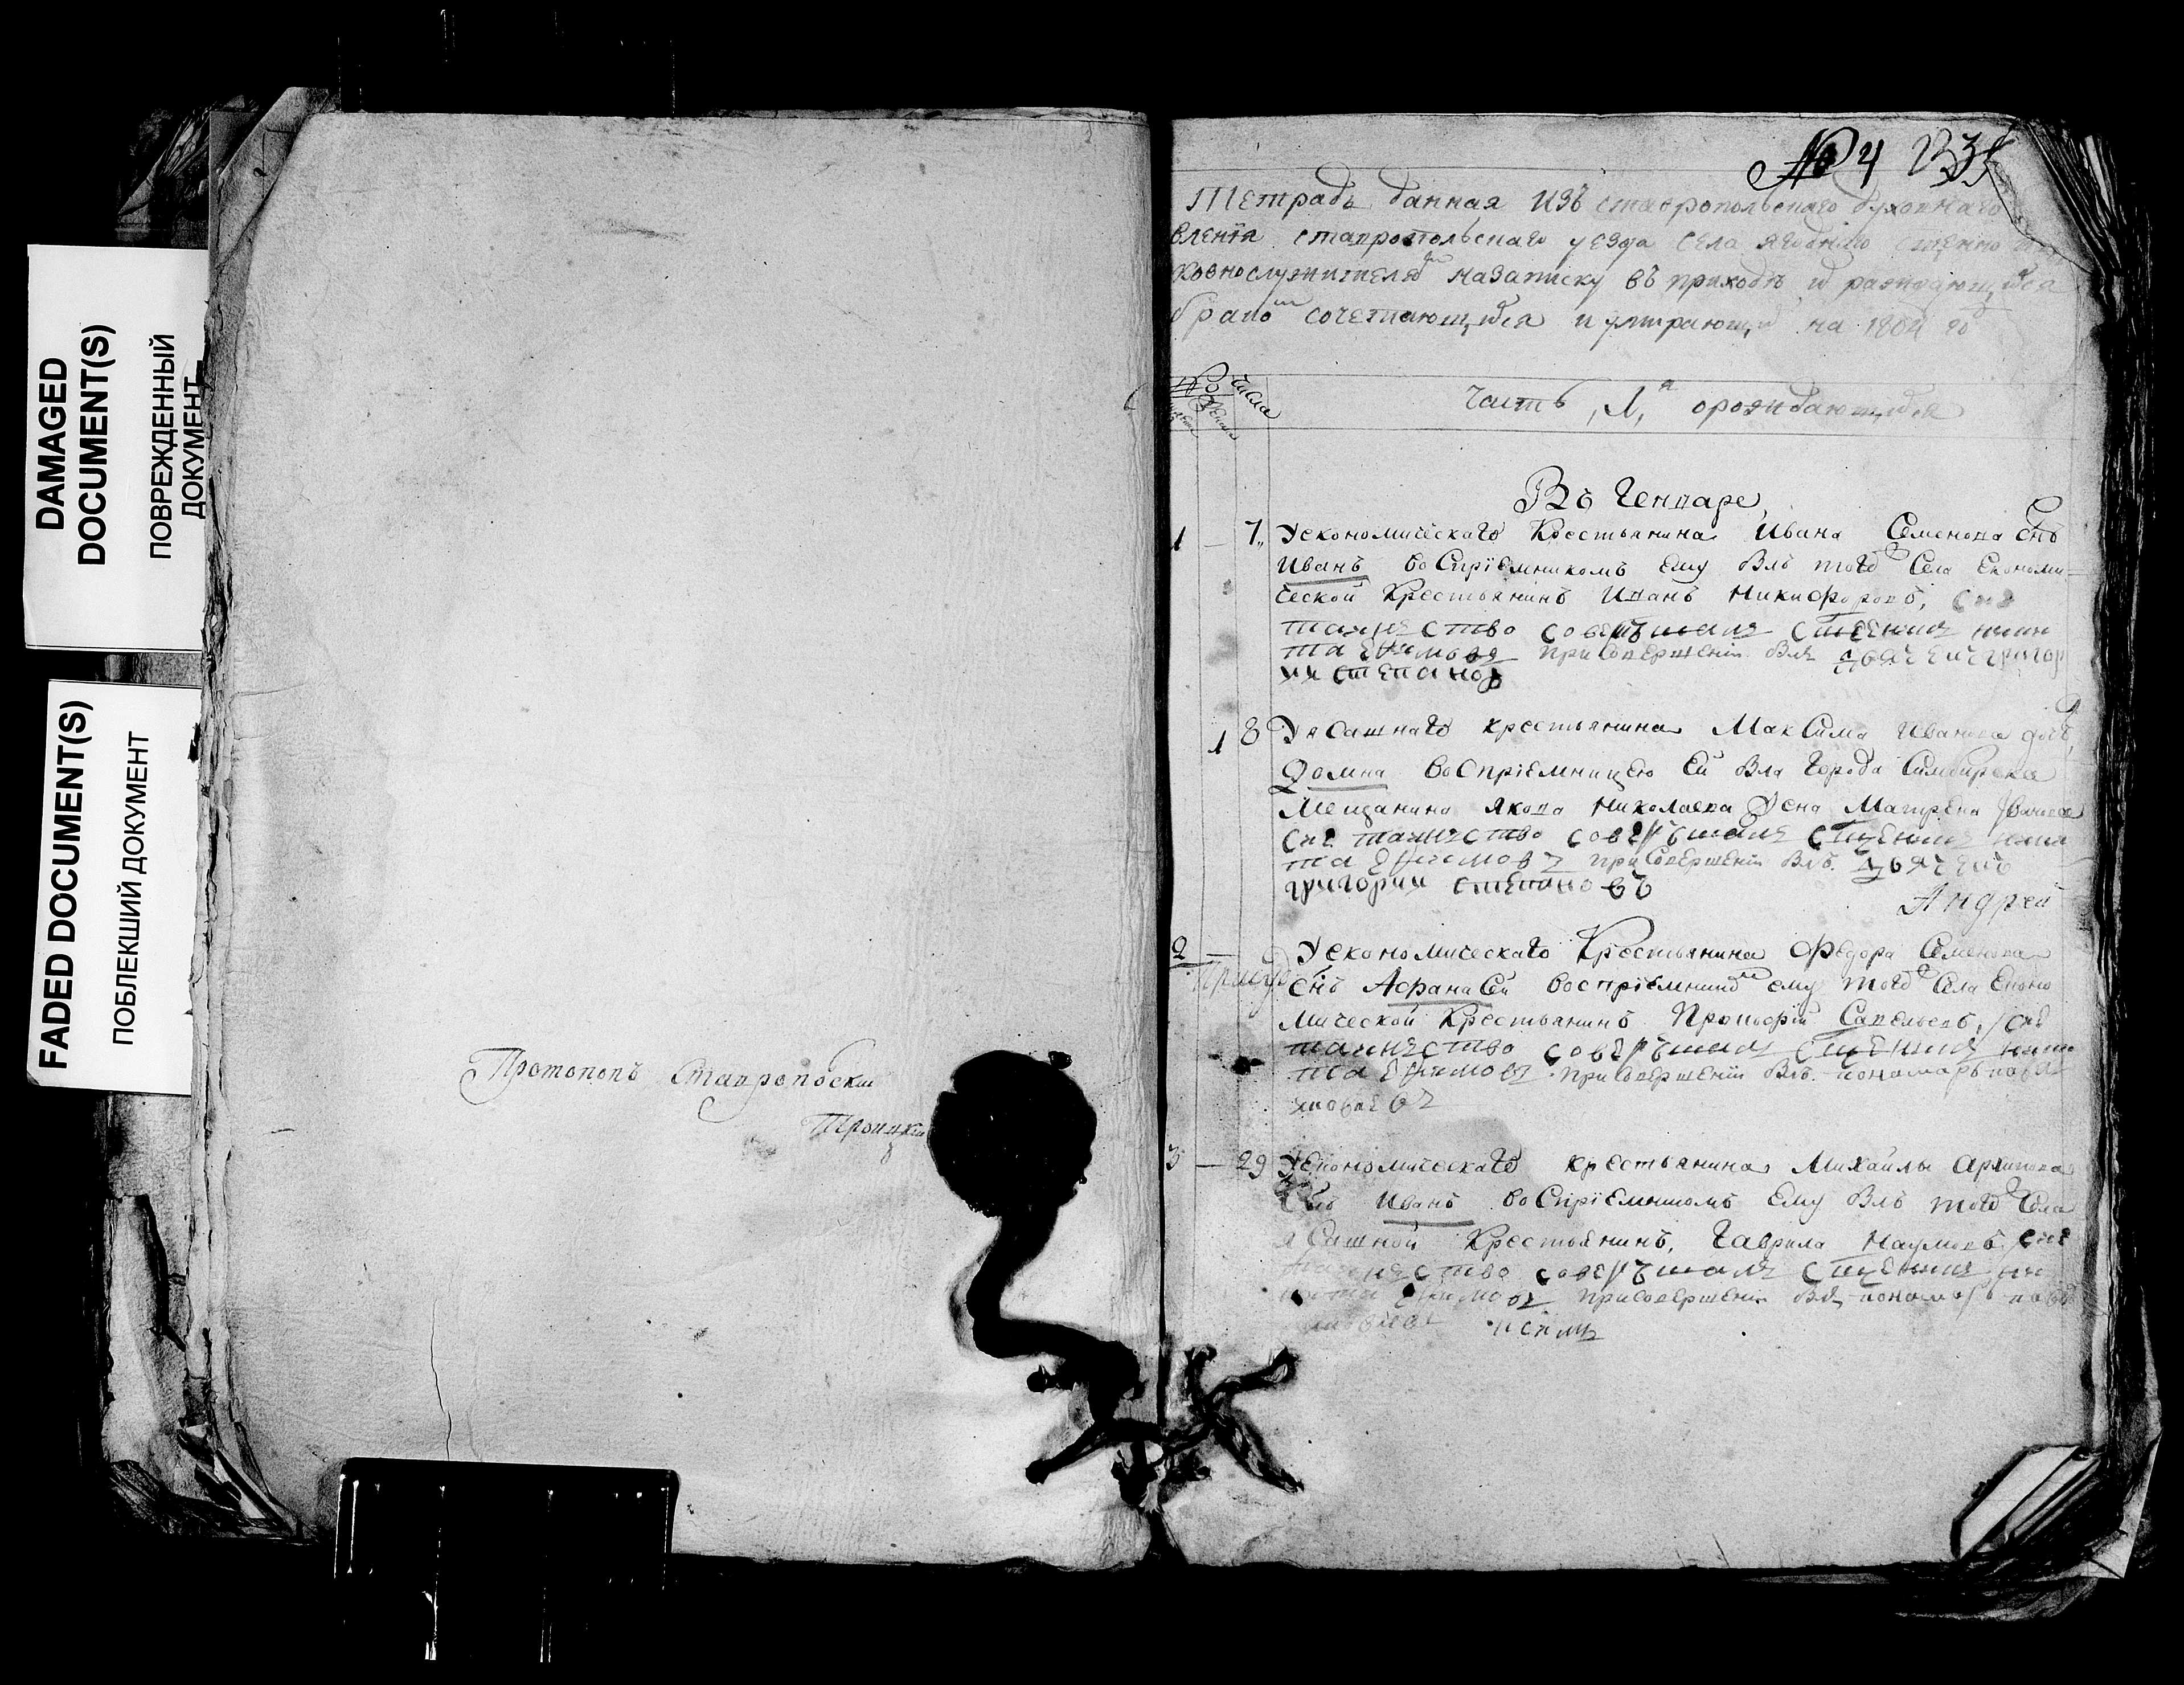 DAMAGED
DOCUMENT(S)
ПОВРЕЖДЕННЫЙ
ДОКУМЕНТ
FADED DOCUMENT(S)
ПОБЛЕКШИЙ ДОКУМЕНТ
Протопопъ
Троицкій
№ 4
Тетрадь данная изъ ставропольскаго духовнаго
вленія ставропольскаго уезда села
на записку въ приходѣ
сочетающихся и умирающих на 180
числа
Часть 1я о рождающихся
Въ Генваре
1 — 7 У економическаго Крестьянина Ивана Семенова снъ
Иванъ воспріемникомъ ему былъ того села Економи-
ческой Крестьянинъ Иванъ Никифоровъ, сие
таинство совершалъ сщенникъ ники
та Ефимовъ при совершеніи былъ дьячекъ григор
ии степанов
1 8 У ясашнаго крестьянина Максима Иванова дочь
Домна воспріемницею ей была города Симбирска
Мещанина Якова Николаева жена
сие таинство совершалъ сщенникъ ники
та Ефимовъ при совершеніи былъ дьячекъ
григории степановъ
Андрей
2 — У економическаго Крестьянина Федора Семенова
снъ Афанасей воспріемником ему того села Еконо
мической Крестьянинъ Прокофій Савельевъ, сие
таинство совершалъ сщенникъ ники
та Ефимовъ при совершеніи былъ пономарь
3 — 29 У економическаго крестьянина Михайлы Архипова
снъ Иванъ воспріемникомъ ему былъ того села
ясашной Крестьянинъ, Гаврила Наумовъ, сие
таинство совершалъ сщенникъ ни
кита Ефимовъ при совершеніи былъ пономарь